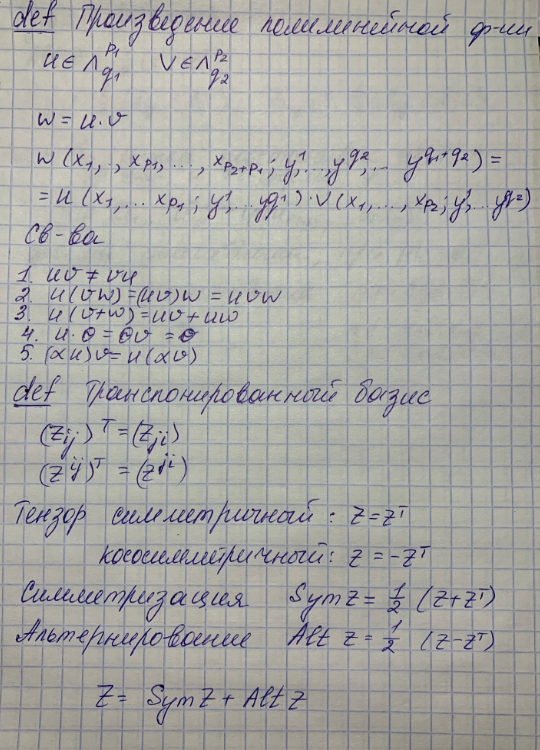 def Произведение полилинейной ф-ии
u ∈ Λ^{p_1}_{q_1} v ∈ Λ^{p_2}_{q_2}
w = u · v
w (x_1, ., x_{p_1}, ..., x_{p_2+p_1}; y^1, ..., y^{q_2}, ... y^{q_1+q_2}) =
= u (x_1, ... x_{p_1}; y^1, .. y^{q_1}) · v (x_1, ..., x_{p_2}; y^1, .. y^{q_2})
Св-ва
1. uv ≠ vu
2. u(vw) = (uv)w = uvw
3. u(v+w) = uv + uw
4. u · θ = θv = θ
5. (αu)v = u(αv)
def Транспонированный базис
(z_{ij})^T = (z_{ji})
(z^{ij})^T = (z^{ji})
Тензор симметричный: z = z^T
кососимметричный: z = -z^T
Симметризация Sym z = 1/2 (z+z^T)
Альтернирование Alt z = 1/2 (z-z^T)
Z = Sym Z + Alt Z